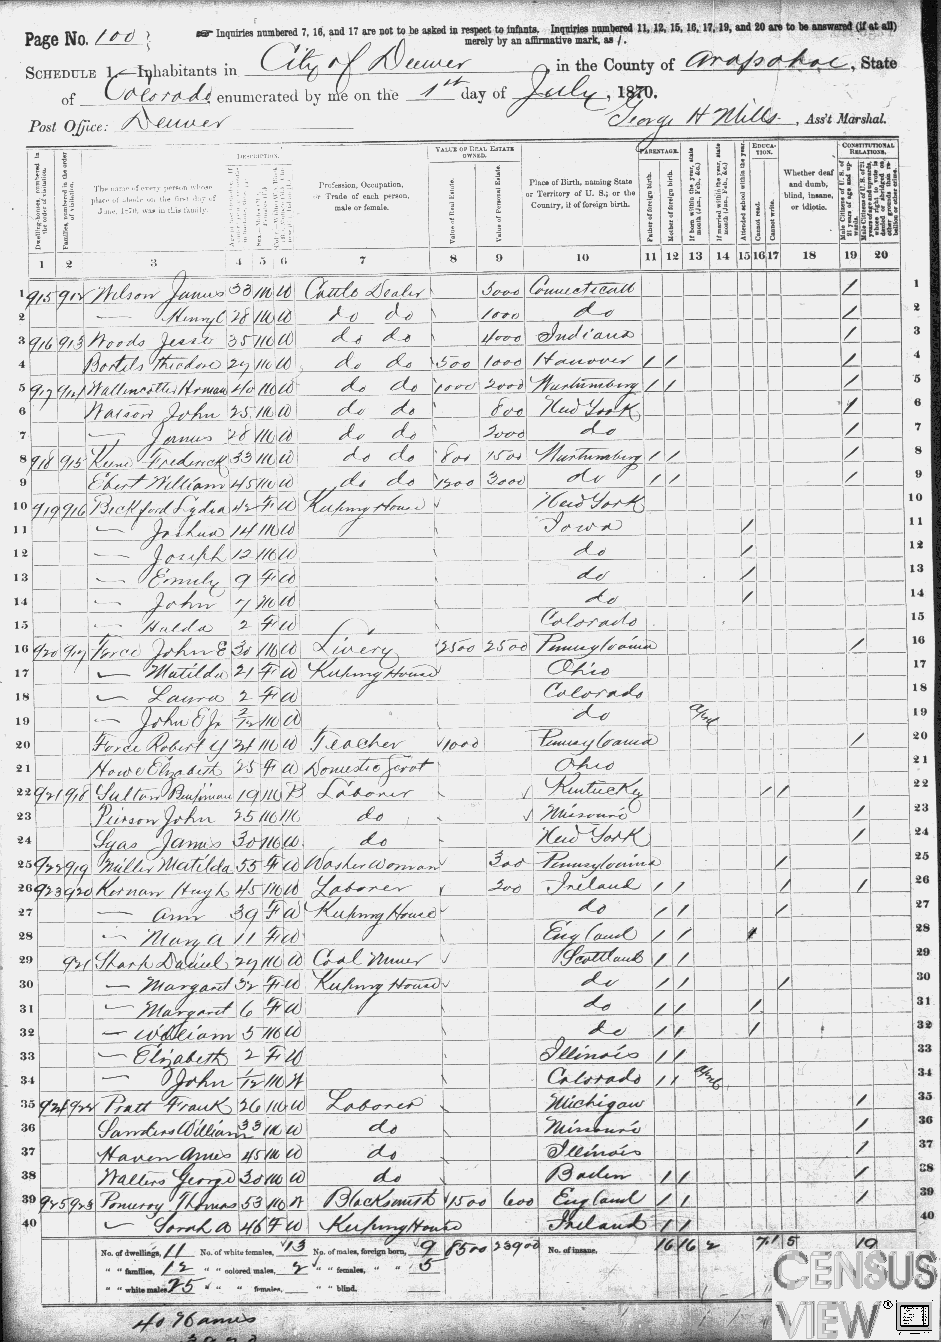 Page No. 100
☞ Inquiries numbered 7, 16, and 17 are not to be asked in respect to infants. Inquiries numbered 11, 12, 15, 16, 17, 19, and 20 are to be answered (if at all)
merely by an affirmative mark, as /.
SCHEDULE 1.—Inhabitants in City of Denver in the County of Arapahoe, State
of Colorado enumerated by me on the 1st day of July, 1870.
Post Office: Denver George H Mills, Ass't Marshal.
Dwelling-houses, numbered in the order of visitation.
Families, numbered in the order of visitation.
The name of every person whose place of abode on the first day of June, 1870, was in this family.
DESCRIPTION.
Profession, Occupation, or Trade of each person, male or female.
VALUE OF REAL ESTATE OWNED.
Value of Real Estate.
Value of Personal Estate.
Place of Birth, naming State or Territory of U. S.; or the Country, if of foreign birth.
PARENTAGE.
Father of foreign birth.
Mother of foreign birth.
If born within the year, state month (Jan., Feb., &c.)
If married within the year, state month (Jan., Feb., &c.)
EDUCATION.
Attended school within the year.
Cannot read.
Cannot write.
Whether deaf and dumb, blind, insane, or idiotic.
CONSTITUTIONAL RELATIONS.
Male Citizens of U. S. of 21 years of age and upwards.
1 2 3 4 5 6 7 8 9 10 11 12 13 14 15 16 17 18 19 20
1 915 912 Wilson James 33 M W Cattle Dealer 3000 Connecticut / 1
2 — Henry C 28 M W do do 1000 do / 2
3 916 913 Woods Jesse 35 M W do do 4000 Indiana / 3
4 Bartels Theodore 29 M W do do 500 1000 Hanover / / / 4
5 917 914 Herman 40 M W do do 1000 2000 Wurtumberg / / / 5
6 Watson John 25 M W do do 800 New York / 6
7 — James 28 M W do do 2000 do / 7
8 918 915 Frederick 33 M W do do 800 1500 Wurtumberg / / / 8
9 Ebert William 45 M W do do 1200 3000 do / / / 9
10 919 916 Bickford Lydia 42 F W Keeping House New York 10
11 — Joshua 14 M W Iowa / 11
12 — Joseph 12 M W do / 12
13 — Emily 9 F W do / 13
14 — John 7 M W do / 14
15 — Hulda 2 F W Colorado 15
16 920 917 Force John E 30 M W Livery 2500 2500 Pennsylvania / 16
17 — Matilda 21 F W Keeping House Ohio 17
18 — Laura 2 F W Colorado 18
19 — John E Jr 2/12 M W do April 19
20 Force Robert Y 24 M W Teacher 1000 Pennsylvania / 20
21 Howe Elizabeth 25 F W Domestic Servt Ohio 21
22 921 918 Benjiman 19 M B Laborer Kentucky / / 22
23 Pierson John 25 M do Missouri / 23
24 James 30 M W do New York / 24
25 922 919 Miller Matilda 55 F W Washer Woman 300 Pennsylvania / 25
26 923 920 Kernan Hugh 45 M W Laborer 200 Ireland / / / / 26
27 — Ann 39 F W Keeping House do / / / 27
28 — Mary A 11 F W England / / / 28
29 921 Sharp Daniel 29 M W Coal Miner Scottland / / 29
30 — Margaret 32 F W Keeping House do / / / 30
31 — Margaret 6 F W do / / / 31
32 — William 5 M W do / / / 32
33 — Elizabeth 2 F W Illinois / / 33
34 — John 1/12 M W Colorado / / April 34
35 924 922 Pratt Frank 26 M W Laborer Michigan / 35
36 Sanders William 33 M W do Missouri / 36
37 Haven Ames 45 M W do Illinois / 37
38 Walters George 30 M W do Baden / / / 38
39 925 923 Pomeroy Thomas 53 M W Blacksmith 1500 600 England / / / 39
40 — Sarah A 46 F W Keeping House Ireland / / 40
No. of dwellings, 11 No. of white females, 13 No. of males, foreign born, 9 8500 23900 No. of insane, 16 16 2 7 1 5 19
" " families, 12 " " colored males, 2 " " females, " " 5
" " white males, 25 " " " females, " " blind,
40 Names
CENSUS
VIEW®